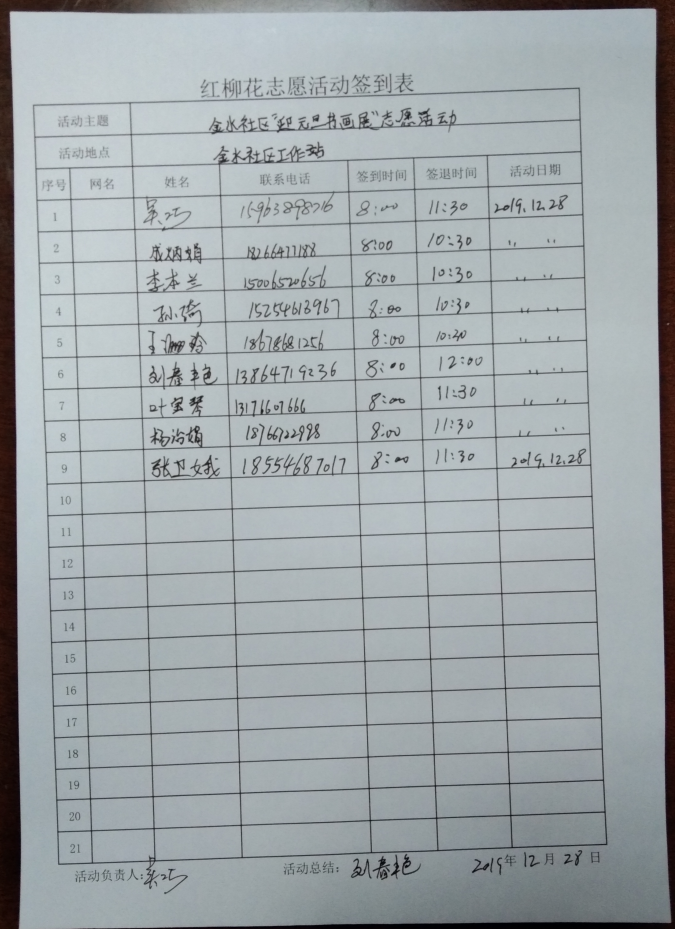 红柳花志愿活动签到表
活动主题 金水社区"迎元旦书画展"志愿活动
活动地点 金水社区工作站
序号 网名 姓名 联系电话 签到时间 签退时间 活动日期
1 吴巧 8:00 11:30 2019.12.28
2 盛炳娟 18266477188 8:00 10:30 〃 〃
3 李本兰 15006520656 8:00 10:30 〃 〃
4 孙琦 15254613967 8:00 10:30 〃 〃
5 王珊玲 18678681256 8:00 10:30 〃 〃
6 刘春艳 13864719236 8:00 12:00 〃 〃
7 叶宝琴 13176607666 8:00 11:30 〃 〃
8 杨治娟 18766722988 8:00 11:30 〃 〃
9 张卫娥 18554687017 8:00 11:30 2019.12.28
10
11
12
13
14
15
16
17
18
19
20
21
活动负责人:吴巧 活动总结: 刘春艳 2019年12月28日